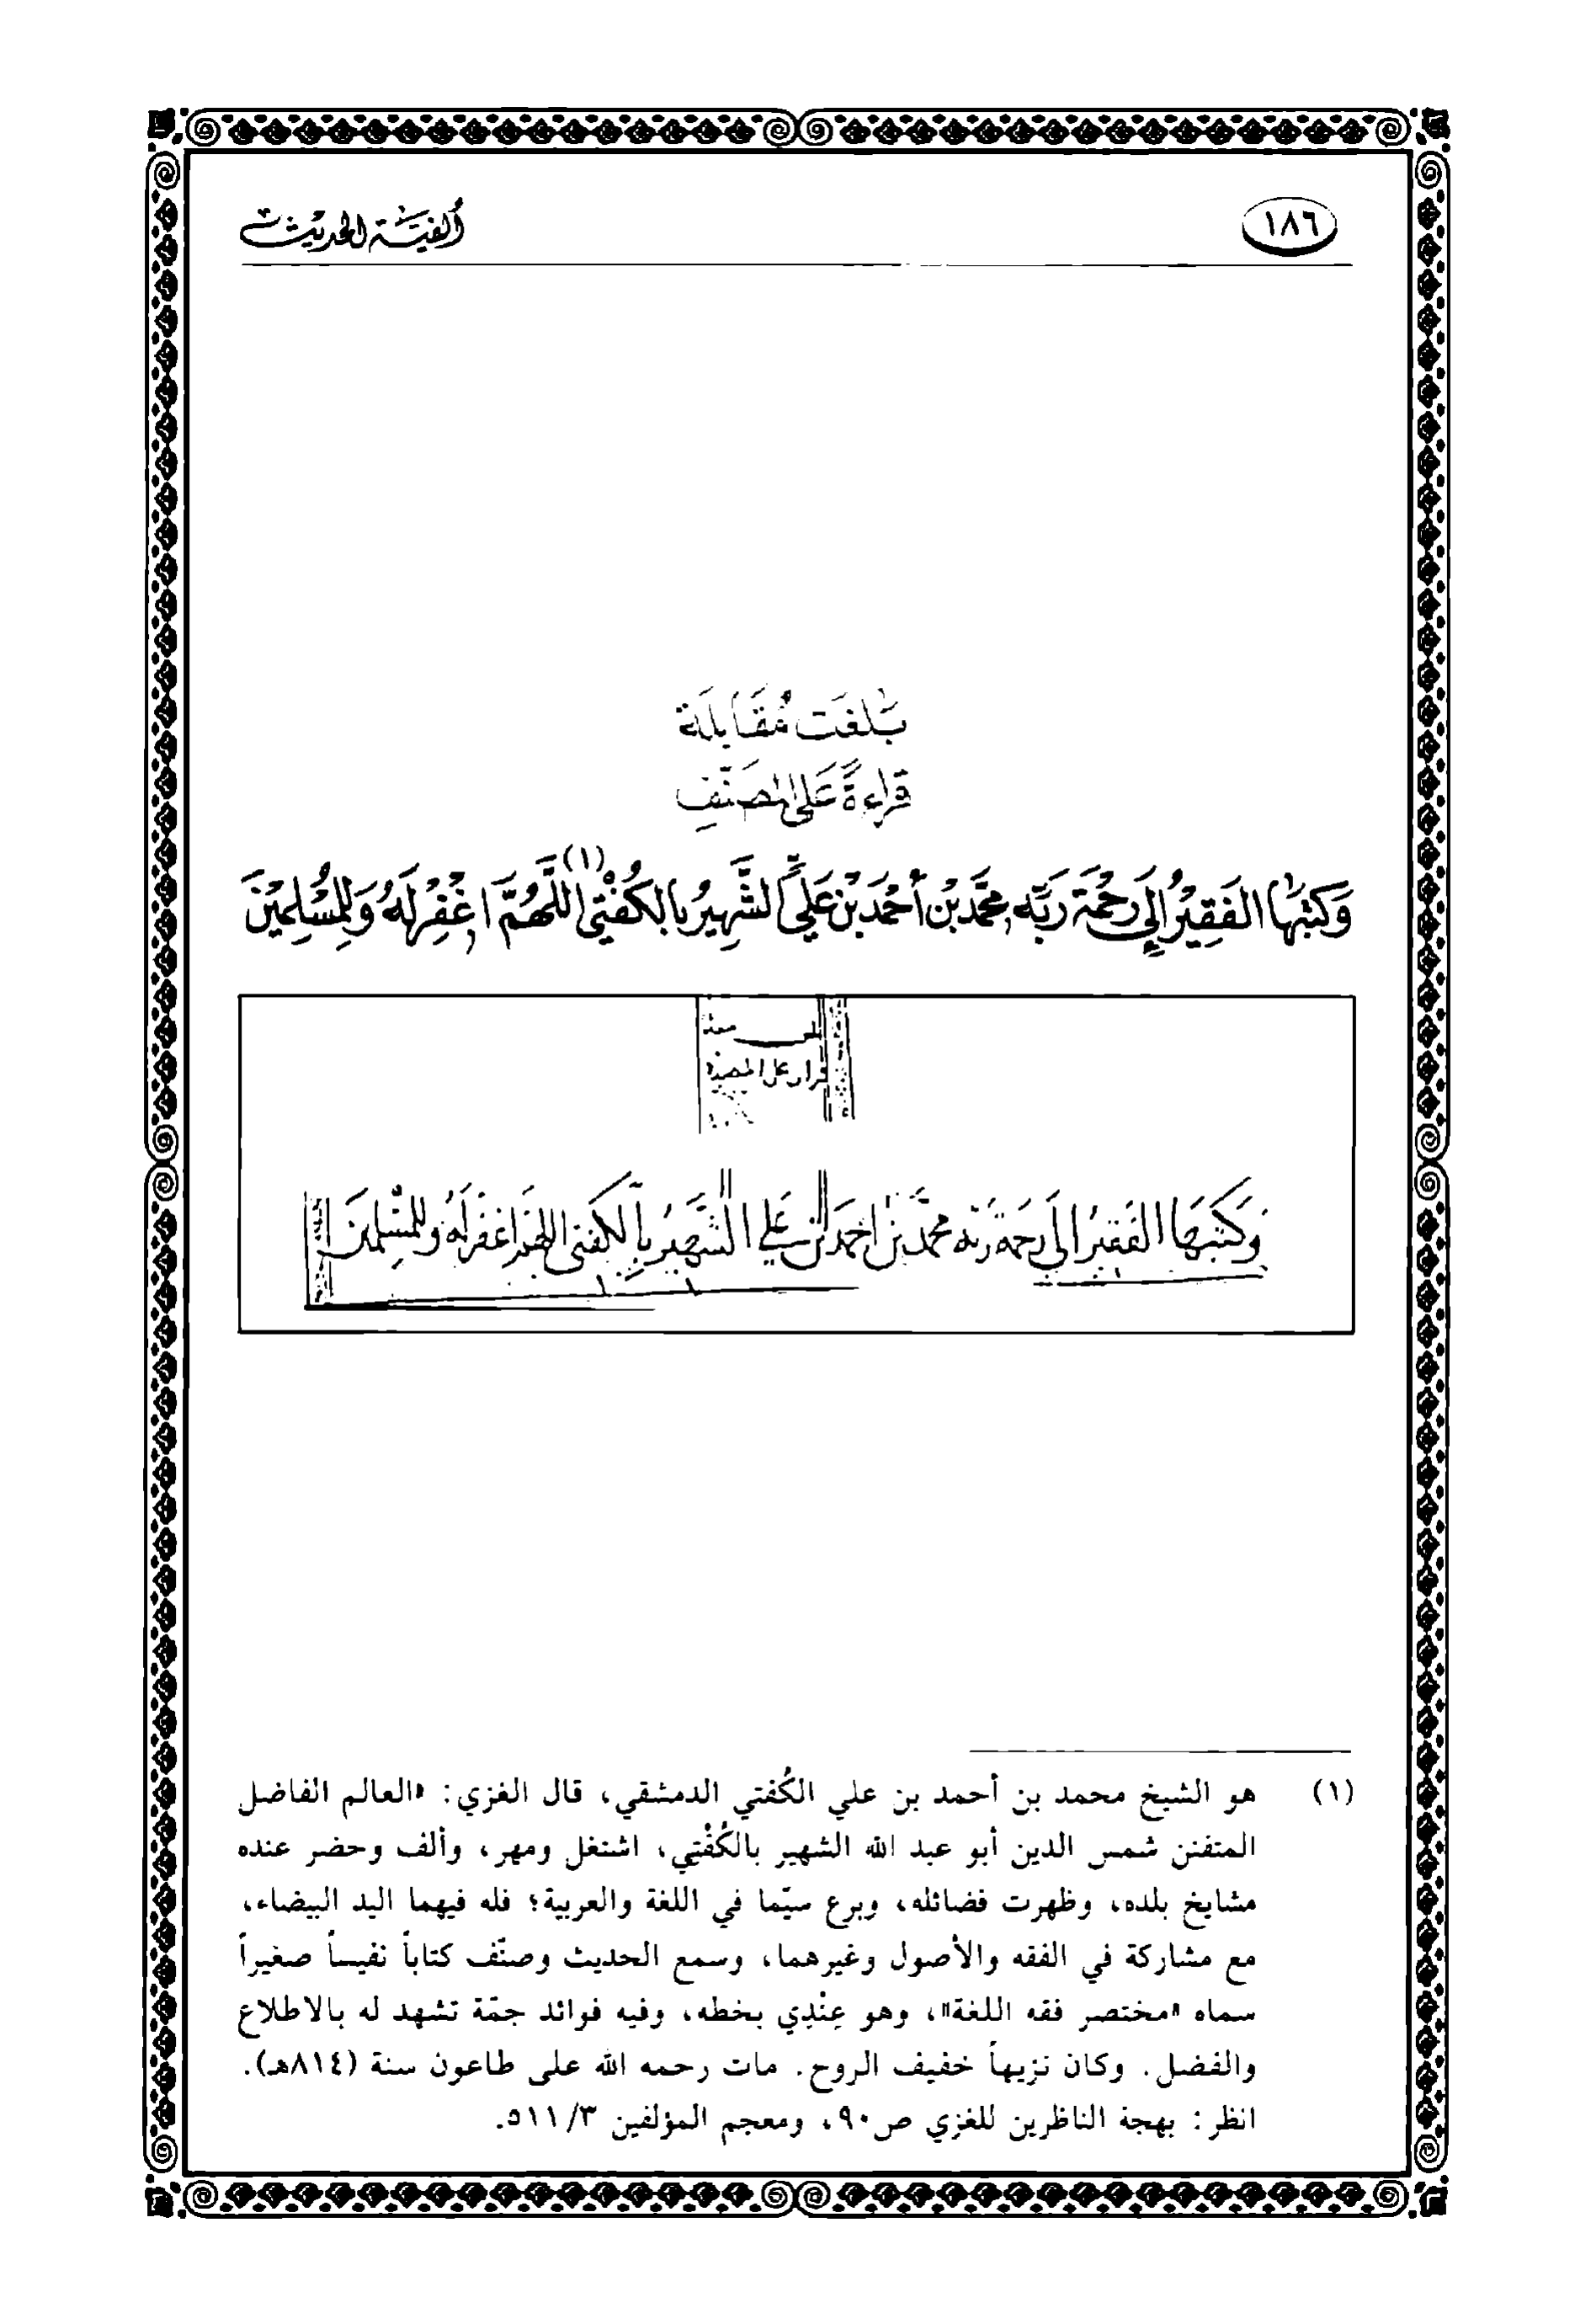 ١٨٦
ألفية الحديث
بَلَغَت مُقَابلَة
قراءةً عَلى المصَنِّفِ
وَكتبهَا الفَقِيرُ إلَى رَحْمَة رَبِّه محمَّد بْن أحْمَد بْن عَلي الشَّهِيرُ بالكُفْتي(١) اللَّهُمَّ اغْفِر لَهُ وَلِلمُسْلِميْنَ
قراءة على المصنف
وَكتبهَا الفَقيرُ إلى رَحمَة رَبّه محمَّد بن احمَد بن عَلي الشَّهيرُ بالكفتى اللهمَّ اغفر لَهُ وللمسْلمينَ
(١) هو الشيخ محمد بن أحمد بن علي الكُفتي الدمشقي، قال الغزي: «العالم الفاضل
المتفنن شمس الدين أبو عبد الله الشهير بالكُفْتِي، اشتغل ومهر، وألف وحضر عنده
مشايخ بلده، وظهرت فضائله، وبرع سيّما في اللغة والعربية؛ فله فيهما اليد البيضاء،
مع مشاركة في الفقه والأصول وغيرهما، وسمع الحديث وصنّف كتاباً نفيساً صغيراً
سماه "مختصر فقه اللغة"، وهو عِنْدِي بخطه، وفيه فوائد جمّة تشهد له بالاطلاع
والفضل. وكان نزيهاً خفيف الروح. مات رحمه الله على طاعون سنة (٨١٤هـ).
انظر: بهجة الناظرين للغزي ص٩٠، ومعجم المؤلفين ٣/ ٥١١.